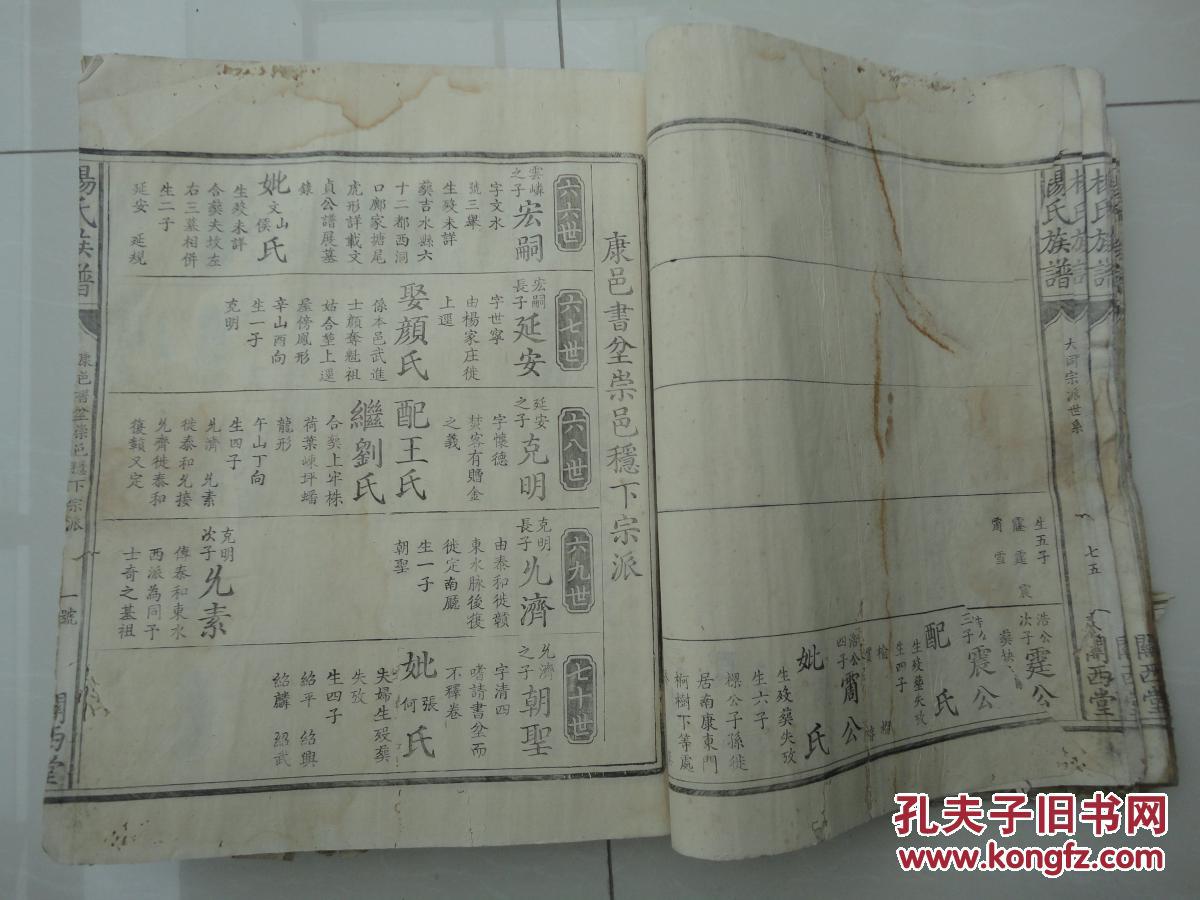 楊氏族譜
大同宗派世系
七五
關西堂
生五子
霳 霆 震
霄 雪
浩公次子霆公
葬缺
三子震公
配 氏
生歿塟失攷
生四子
浩公四子霄公
妣 氏
生歿葬失攷
生六子
棵公子孫徙
居南康東門
柯樹下等處
康邑書坌崇邑穩下宗派
六六世
雲嶙之子宏嗣
字文水
號三舉
生歿未詳
葬吉水縣六
十二都西洞
口鄺家塘尾
虎形詳載文
貞公譜展墓
錄
妣文山侯氏
生歿未詳
合葬夫坟左
右三墓相併
生二子
延安 延規
六七世
宏嗣長子延安
字世寧
由楊家庄徙
上逕
娶顏氏
係本邑武進
士顏奪魁祖
姑合塟上逕
屋傍鳳形
辛山酉向
生一子
克明
六八世
延安之子克明
字懷德
焚客有贈金
之義
配王氏
繼劉氏
合葬上坪株
荷葉崠坪蟠
龍形
午山丁向
生四子
允濟 允素
徙泰和允接
允齊徙泰和
復類又定
六九世
克明長子允濟
由泰和徙贛
東水脉後復
徙定南廳
生一子
朝聖
克明次子允素
傳泰和東水
西派為同予
士奇之基祖
七十世
允濟之子朝聖
字清四
嗜請書坌而
不釋卷
妣張何氏
夫婦生歿葬
失攷
生四子
紹平 紹興
紹麟 紹武
楊氏族譜
康邑書坌崇邑穩下宗派
一號
關西堂
孔夫子旧书网
www.kongfz.com